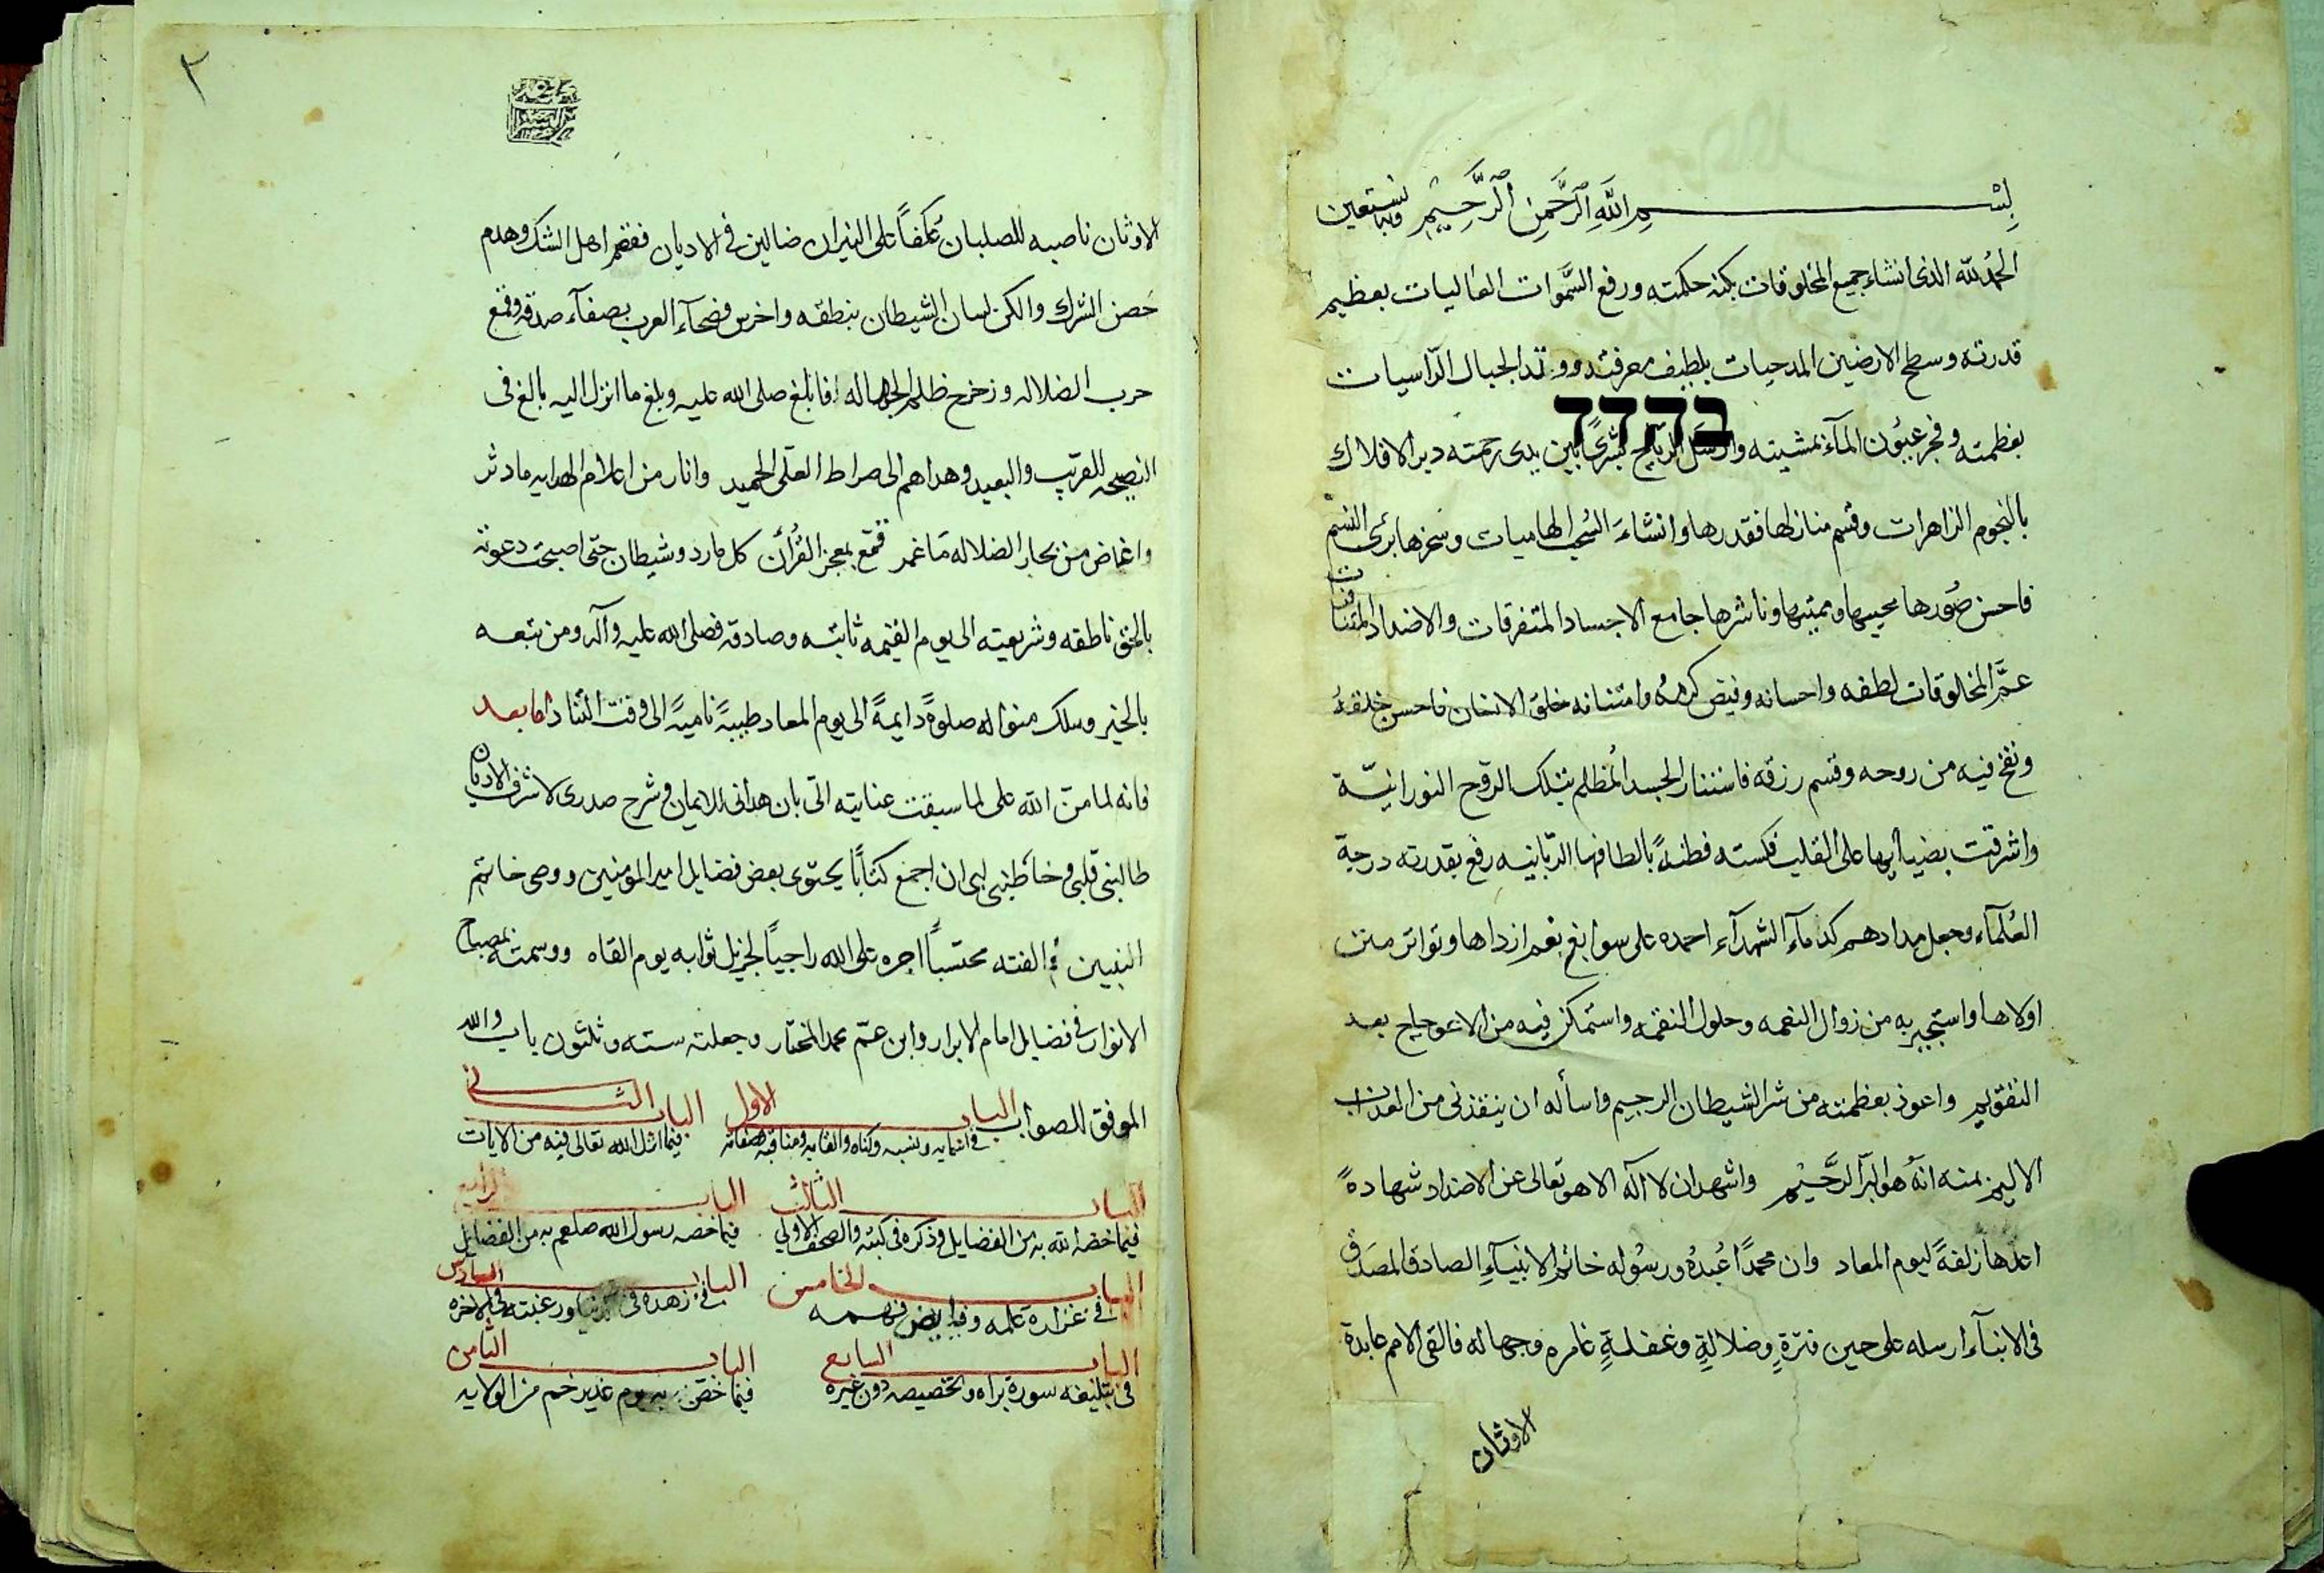 بسم الله الرحمن الرحيم وبه نستعين
الحمد لله الذى انشاء جميع المخلوقات بكنه حكمته ورفع السموات العاليات بعظيم
قدرته وسطح الارضين المدحيات بلطيف معرفته ووتد الجبال الراسيات
בדדד
بعظمته وفجر عيون المآء بمشيته وارسل الرياح بشرى بين يدى رحمته دير الافلاك
بالنجوم الزاهرات وقسم منازلها فقدرها وانشاء السحب الهاميات وسخرها برئ النسم
فاحسن صورها محييها ومميتها وناشرها جامع الاجساد المتفرقات والاضداد المتنافات
عم المخلوقات لطفه واحسانه وفيض كرمه وامتنانه خلق الانسان فاحسن خلقه
ونفخ فيه من روحه وقسم رزقه فاستنار الجسد المظلم بتلك الروح النورانية
واشرقت بضيائها على القلب فكسته فطنة بالطافها الربانيه رفع بقدرته درجة
العلمآء وجعل مدادهم كدمآء الشهدآء احمده على سوابغ نعم ازداها وتواتر منن
اولاها واستجير به من زوال النعمه وحلول النقمه واستمكن فيه من الاعوجاج بعد
التقويم واعوذ بعظمته من شر الشيطان الرجيم واسأله ان ينقذنى من العذاب
الاليم بمنه انه هو البر الرحيم واشهد ان لا اله الا هو تعالى عن الاضداد شهادة
اعدها زلفة ليوم المعاد وان محمدا عبده ورسوله خاتم الانبيآء الصادق المصدق
فى الانبآء ارسله على حين فترة وضلالة وغفلة غامره وجهاله فالقى الامم عابدة
الاوثان
٢
الاوثان ناصبه للصلبان عكفا على النيران ضالين فى الاديان فقصم اهل الشك وهدم
حصن الشرك والكن لسان الشيطان بنطقه واخرس فصحآء العرب بصفآء صدقه وقمع
حرب الضلاله وزحزح ظلم الجهاله فابلغ صلى الله عليه وبلغ ما انزل اليه بالغ فى
النصيحه للقريب والبعيد وهداهم الى صراط العلى الحميد وانار من اعلام الهدايه ما دثر
واغاض من بحار الضلاله ما غمر قمع بمعجز القرأن كل مارد وشيطان حتى اصبحت دعوته
بالحق ناطقه وشريعته الى يوم القيمه ثابته وصادقه فصلى الله عليه وآله ومن تبعه
بالخير وسلك منواله صلوة دايمة الى يوم المعاد طيبة نامية الى وقت التناد اما بعد
فانه لما من الله على لما سبقت عنايته الى بان هدانى للايمان وشرح صدرى لاشرف الاديان
طالبنى قلبى وخاطبنى لبى ان اجمع كتابا يحتوى بعض فضايل امير المؤمنين ووصى خاتم
النبيين فالفته محتسبا اجره على الله راجيا لجزيل ثوابه يوم القاه ووسمته بمصباح
الانوار فى فضايل امام الابرار وابن عم محمد المختار وجعلته سته وثلثون باب والله
الموفق للصواب الباب الاول الباب الثانى
فى اسمايه ونسبه وكناه والقابه ومناقبه وصفاته فيما انزل الله تعالى فيه من الايات
الباب الثالث الباب الرابع
فيما خصه الله به من الفضايل وذكره فى كتبه والصحف الاولى فيما خصه رسول الله صلعم به من الفضايل
الباب الخامس الباب السادس
فى غزارة علمه وفرايض فهمه فى زهده فى الدنيا ورغبته فى الاخره
الباب السابع الباب الثامن
فى تبليغه سورة براه وتخصيصه دون غيره فيما خص به يوم غدير خم من الولايه